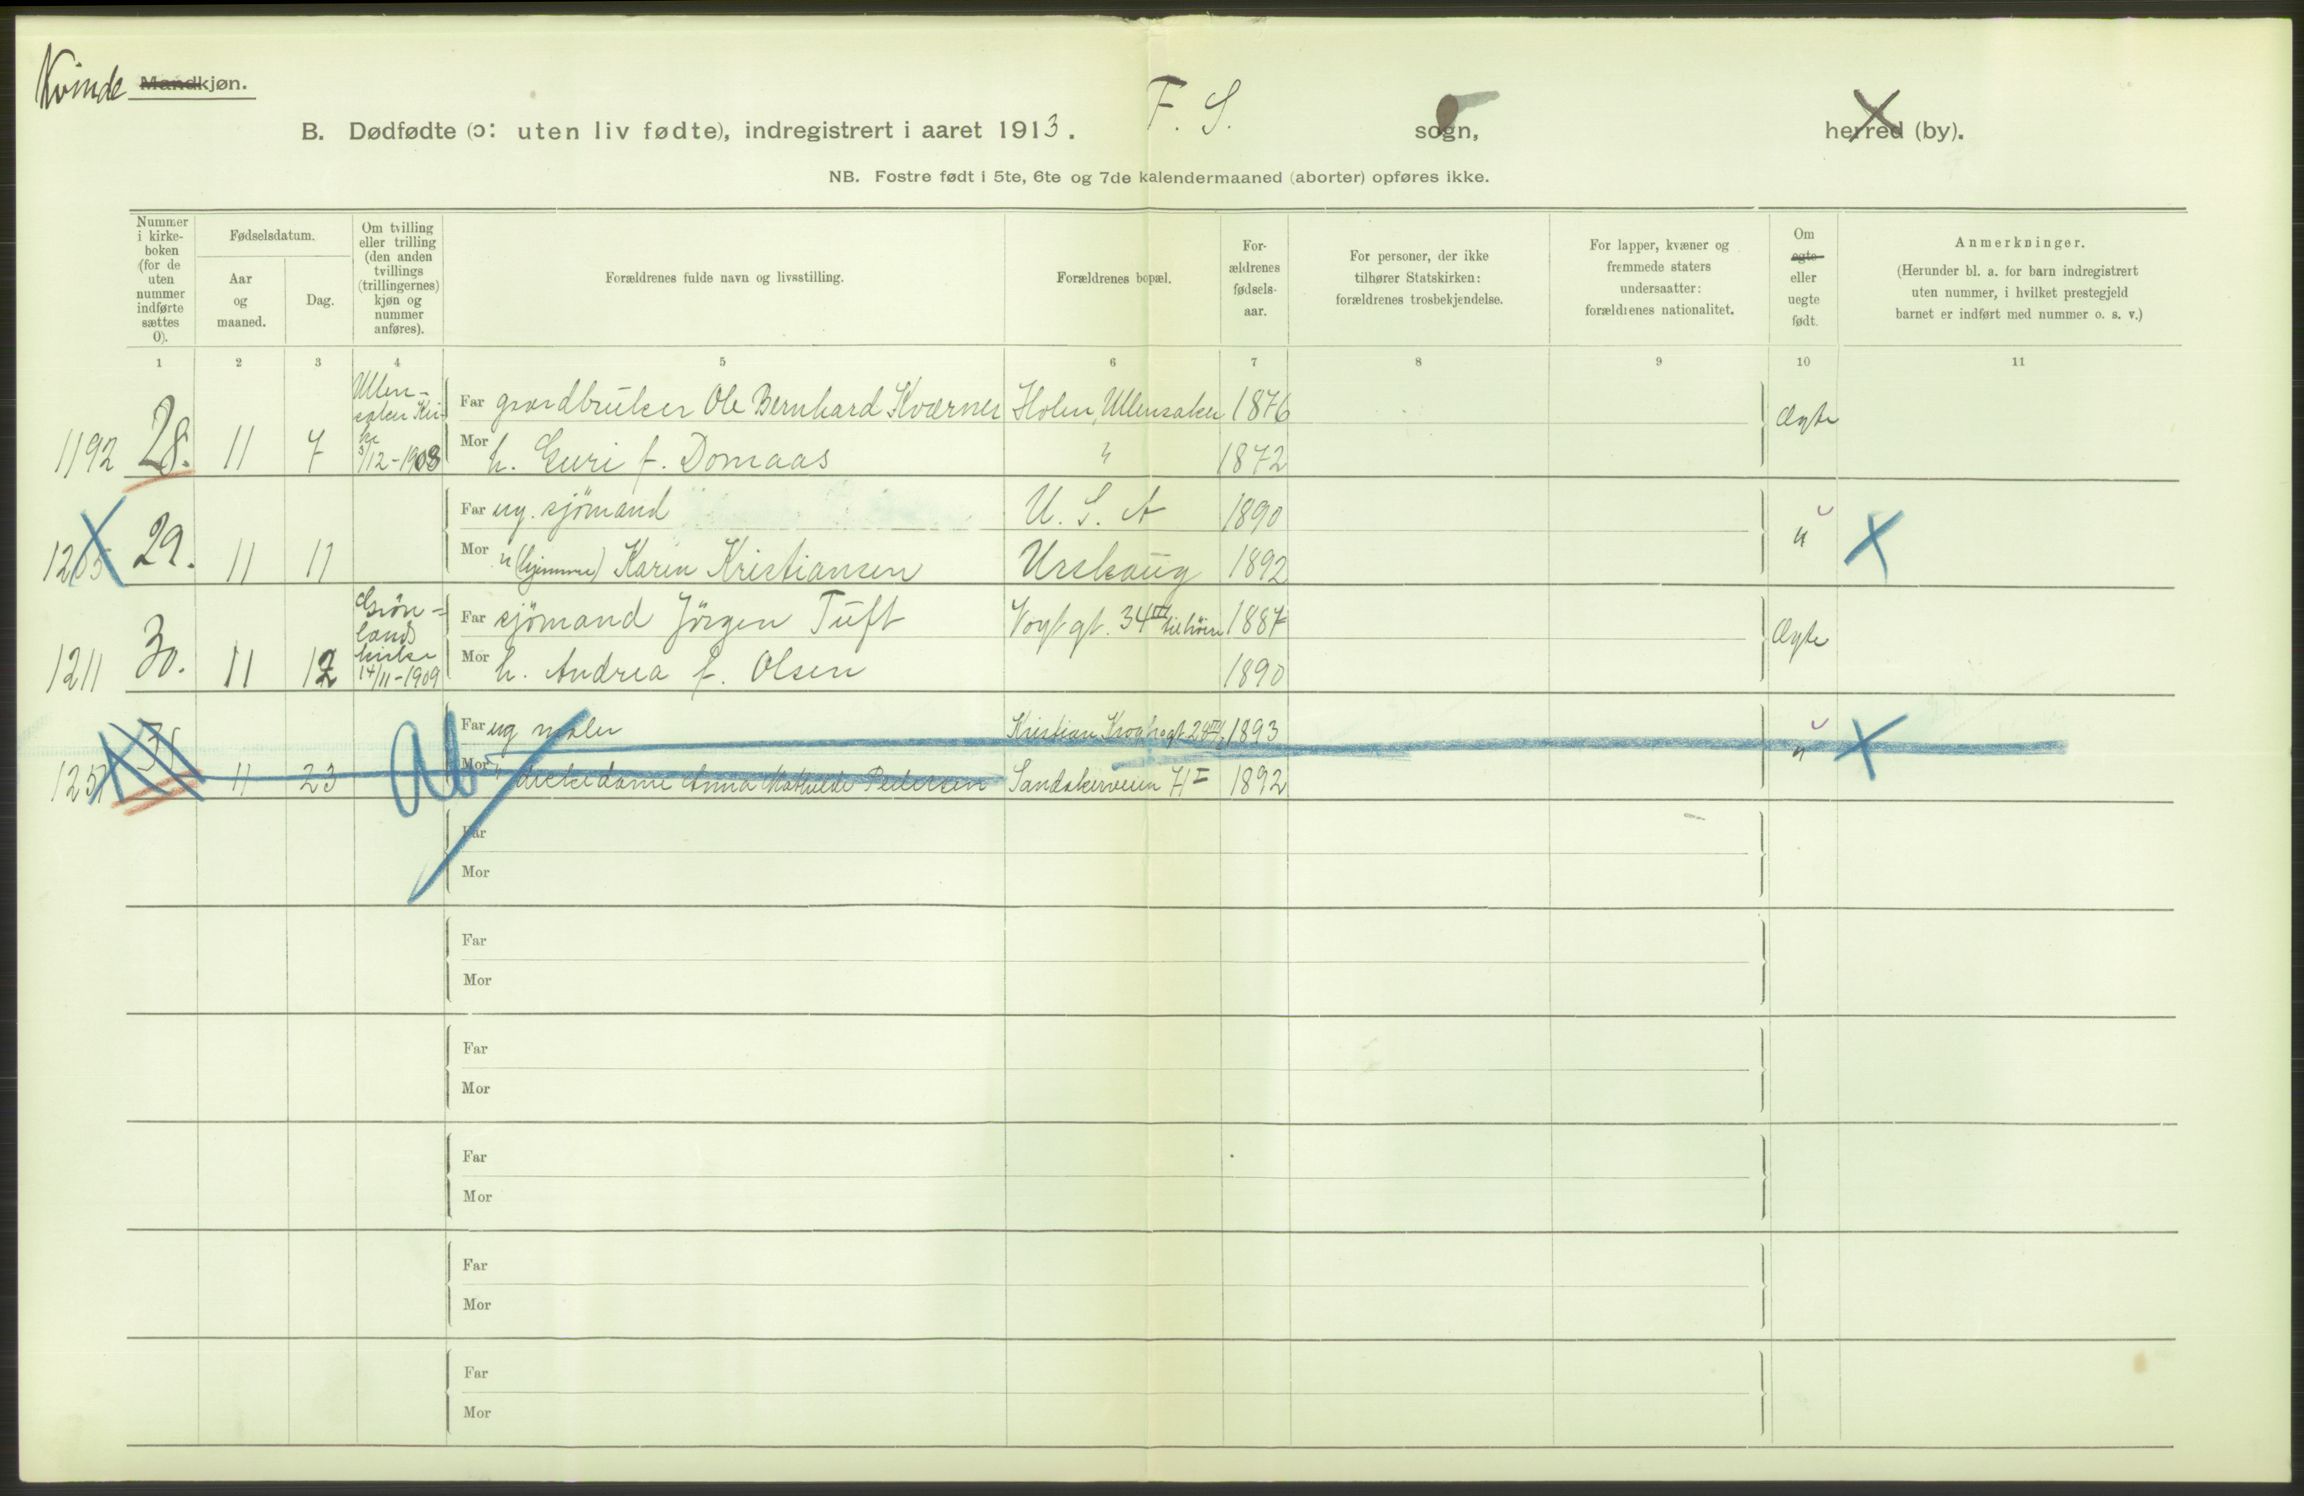 Kvinde Mandkjøn.
B. Dødfødte (ɔ: uten liv fødte), indregistrert i aaret 1913. F. S. sogn, herred (by).
NB. Fostre født i 5te, 6te og 7de kalendermaaned (aborter) opføres ikke.
Nummer
i kirke-
boken
(for de
uten
nummer
indførte
sættes
0).
Fødselsdatum.
Aar
og
maaned.
Dag.
Om tvilling
eller trilling
(den anden
tvillings
(trillingernes)
kjøn og
nummer
anføres).
Forældrenes fulde navn og livsstilling.
Forældrenes bopæl.
For-
ældrenes
fødsels-
aar.
For personer, der ikke
tilhører Statskirken:
forældrenes trosbekjendelse.
For lapper, kvæner og
fremmede staters
undersaatter:
forældrenes nationalitet.
Om
egte
eller
uegte
født.
Anmerkninger.
(Herunder bl. a. for barn indregistrert
uten nummer, i hvilket prestegjeld
barnet er indført med nummer o. s. v.)
1 2 3 4 5 6 7 8 9 10 11
Ullen-
saker Kir-
ke
3/12-1908
Far gaardbruker Ole Bernhard Kværner Holm, Ullensaker 1876 Ægte
1192 28. 11 7 Mor h. Guri f. Domaas " 1872
Far ug. sjömand U. S. A 1890 u
29. 11 11 Mor u (hjemme) Karen Kristiansen Urskaug 1892
Grön-
lands
kirke
14/11-1909
Far sjömand Jörgen Tuft Vogt gt. 34 III til höire 1887 Ægte
1211 30. 11 12 Mor h. Andrea f. Olsen 1890
Far ug maler Kristian Kroghs gt. 1893 u
11 23 Ab Mor " Anna Mathilde Pedersen Sandakerveien 1892
Far
Mor
Far
Mor
Far
Mor
Far
Mor
Far
Mor
Far
Mor